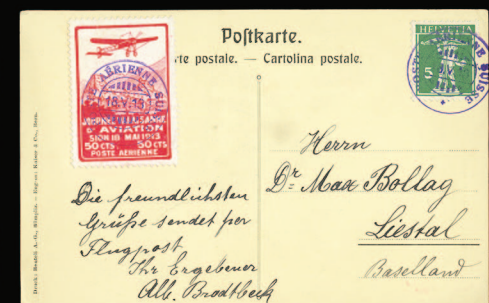 Postkarte.
te postale. — Cartolina postale.
HELVETIA
5
POSTE AÉRIENNE SUISSE
18.V.13
AVIATION
SION 18 MAI 1913
50 CTS 50 CTS
POSTE AÉRIENNE
Herrn
Dr. Max Bollag
Liestal
Baselland
Die freundlichsten
Grüße sendet per
Flugpost
Ihr Ergebener
Alb. Brodtbeck